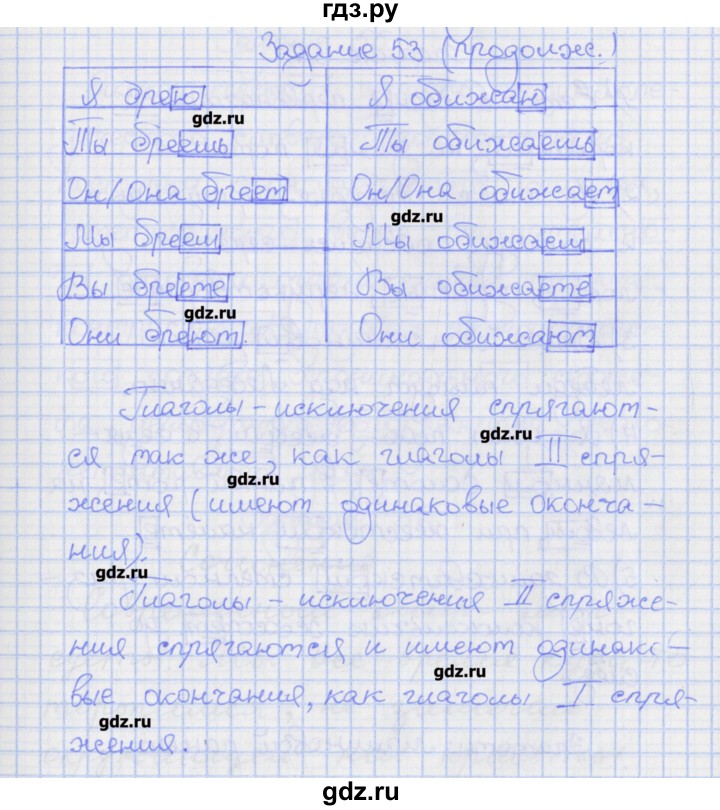 гдз.ру
Задание 53 (продолж.)
Я брею Я обижаю
gdz.ru
Ты бреешь Ты обижаешь
Он/Она бреет Он/Она обижает
gdz.ru
Мы бреем Мы обижаем
Вы бреете Вы обижаете
gdz.ru
Они бреют. Они обижают
Глаголы - исключения спрягают-
gdz.ru
ся так же, как глаголы II спря-
gdz.ru
жения (имеют одинаковые оконча-
ния).
gdz.ru
Глаголы - исключения II спряже-
ния спрягаются и имеют одинако-
gdz.ru
вые окончания, как глаголы I спря-
gdz.ru
жения.
gdz.ru